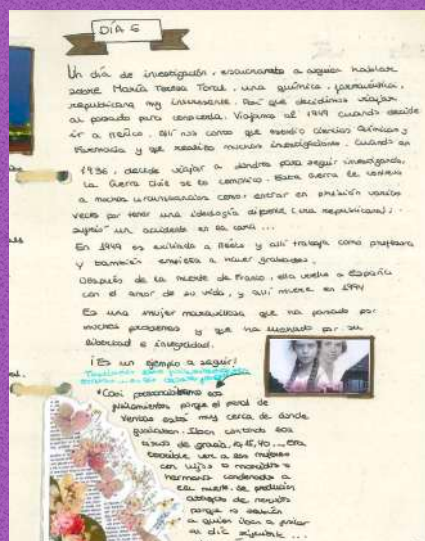 DÍA 6
Un día de investigación, escuchamos a alguien hablar
sobre María Teresa Toral, una química, farmacéutica,
republicana muy interesante. Por qué decidimos viajar
al pasado para conocerla. Viajamos al 1949 cuando decide
ir a México. Allí nos contó que estudió Ciencias Químicas y
Farmacia y que realizó muchas investigaciones. Cuando en
1936, decide viajar a Londres para seguir investigando,
la Guerra Civil se lo complicó. Esta guerra le conllevó
a muchas circunstancias como: entrar en prisión varias
veces por tener una ideología diferente (era republicana);
sufrió un accidente en la cara ...
En 1949 es exiliada a México y allí trabaja como profesora
y también empieza a hacer grabados.
Después de la muerte de Franco, ella vuelve a España
con el amor de su vida, y allí muere en 1994
Es una mujer maravillosa que ha pasado por
muchos problemas y que ha luchado por su
libertad e integridad.
¡Es un ejemplo a seguir!
"Casi presenciábamos los
fusilamientos porque el penal de
Ventas está muy cerca de donde
fusilaban. Iban contando los
tiros de gracia, 10, 15, 40, ... Era
terrible ver a las mujeres
con hijos o maridos o
hermanos condenados a
la muerte. Se producían
ataques de nervios
porque no sabían
a quien iban a fusilar
al día siguiente ...